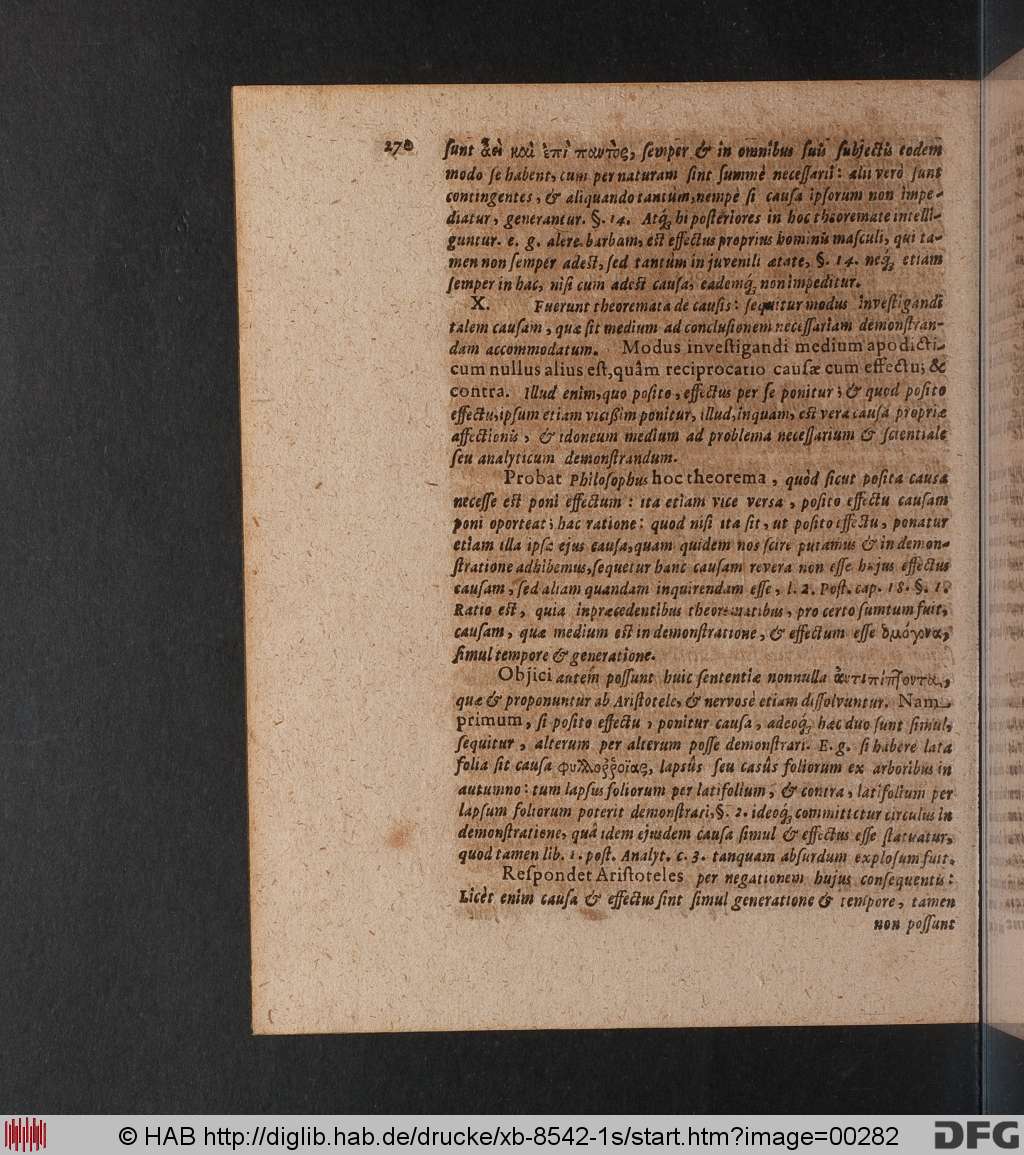 270 sunt ἀεὶ καὶ ἐπὶ παντὸς, semper & in omnibus suis subjectis eodem
modo se habent, cum per naturam sint summè necessarii: alii verò sunt
contingentes, & aliquando tantùm, nempè si causa ipsorum non impe-
diatur, generantur. §. 14. Atq; hi posteriores in hoc theoremate intelli-
guntur. e. g. alere barbam, est effectus proprius hominis masculi, qui ta-
men non semper adest, sed tantùm in juvenili ætate, §. 14. neq; etiam
semper in hac, nisi cùm adest causa, eademq; non impeditur.
X. Fuerunt theoremata de causis: sequitur modus investigandi
talem causam, quæ sit medium ad conclusionem necessariam demonstran-
dam accommodatum. Modus investigandi medium apodicti-
cum nullus alius est, quâm reciprocatio causæ cum effectu; &
contra. Illud enim, quo posito, effectus per se ponitur; & quod posito
effectu, ipsum etiam vicißim ponitur, illud, inquam, est vera causa propriæ
affectionis, & idoneum medium ad problema necessarium & scientiale
seu analyticum demonstrandum.
Probat Philosophus hoc theorema, quòd sicut posita causa
necesse est poni effectum: ita etiam vice versa, posito effectu causam
poni oporteat; hac ratione: quod nisi ita sit, ut posito effectu, ponatur
etiam illa ipsa ejus causa, quam quidem nos scire putamus & in demon-
stratione adhibemus, sequetur hanc causam revera non esse hujus effectus
causam, sed aliam quandam inquirendam esse, l. 2. Post. cap. 18. §. 1.
Ratio est, quia in præcedentibus theorematibus, pro certo sumtum fuit,
causam, quæ medium est in demonstratione, & effectum esse ὁμόγονα,
simul tempore & generatione.
Objici autem possunt huic sententiæ nonnulla ἀντιπίπτοντα,
quæ & proponuntur ab Aristotele, & nervosè etiam dissolvuntur. Nam
primum, si posito effectu, ponitur causa, adeoq; hæc duo sunt simul,
sequitur, alterum per alterum posse demonstrari. E. g. si habere lata
folia sit causa φυλλοῤῥοΐας, lapsûs seu casûs foliorum ex arboribus in
autumno: tum lapsus foliorum per latifolium, & contra, latifolium per
lapsum foliorum poterit demonstrari, §. 2. ideoq; committetur circulus in
demonstratione, quâ idem ejusdem causa simul & effectus esse statuatur,
quod tamen lib. 1. post. Analyt. c. 3. tanquam absurdum explosum fuit.
Respondet Aristoteles per negationem hujus consequentis:
Licèt enim causa & effectus sint simul generatione & tempore, tamen
non possunt
© HAB http://diglib.hab.de/drucke/xb-8542-1s/start.htm?image=00282
DFG